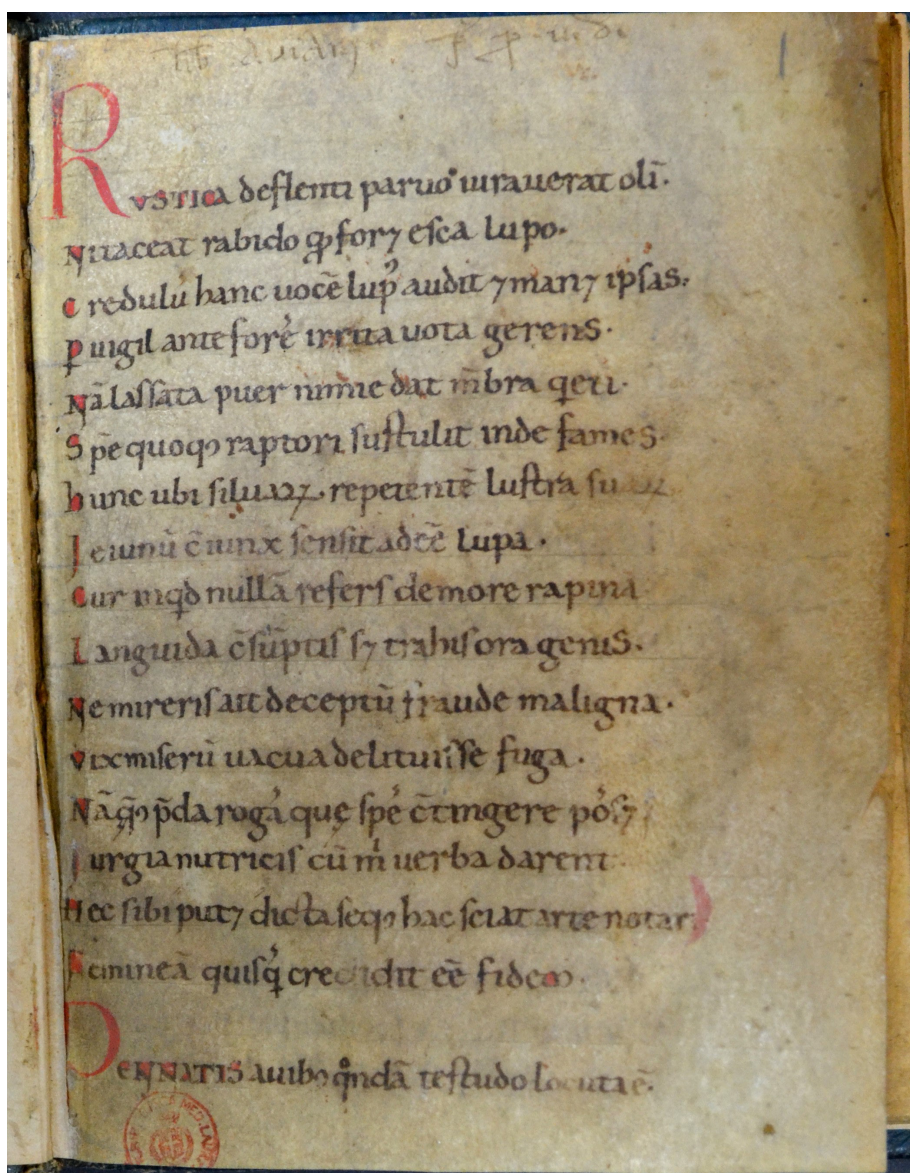 RVSTICA deflenti paruo iurauerat olī.
Nitaceat rabido qꝫ for⁊ esca lupo.
Credulū hanc uocē lupꝰ audit ⁊ man⁊ ipsas.
Puigil ante forē irrita uota gerens.
Nā lassata puer nimie dat mēbra qeti.
Spē quoqꝫ raptori sustulit inde fames.
hunc ubi siluaꝝ repetentē lustra suaꝝ
Ieiunū c̄iunx sensit adēē lupa.
Cur inqd nullā refers de more rapinā
Languida c̄sūptis s⁊ trahis ora genis.
Ne mireris ait deceptū fraude maligna.
Vix miserū uacua delituisse fuga.
Nā qꝫ p̄da roga que spē c̄tingere pos⁊
Iurgia nutricis cū m uerba darent
Hec sibi put⁊ dicta seqꝫ hac sciat arte notari
Femineā quisq̄ credidit eē fidem.
PENNATIS auibꝫ qndā testudo locuta ē.